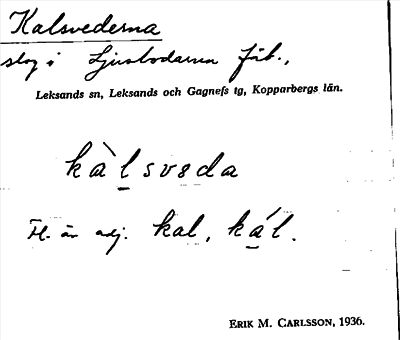 Kalsvederna
skog i Ljusbodarna fäb.,
Leksands sn, Leksands och Gagnefs tg, Kopparbergs län.
kàl̲sveda
Fl. är adj. kal, ká̲l.
ERIK M. CARLSSON, 1936.